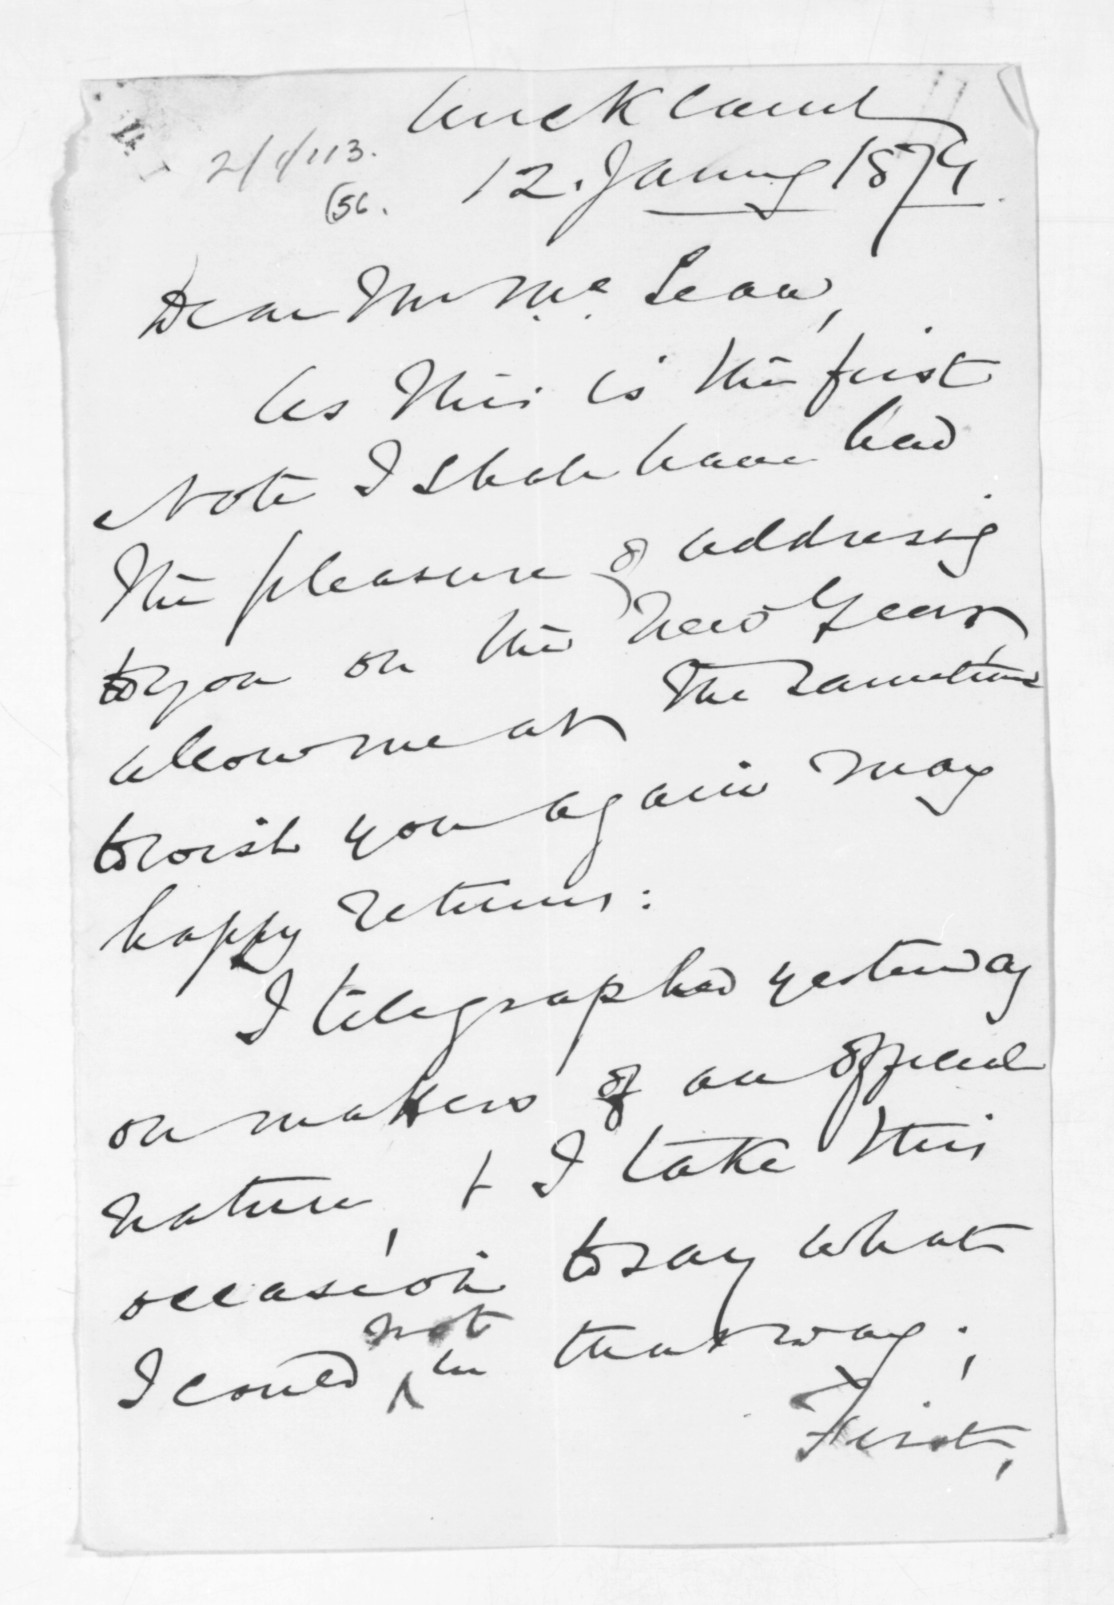 Auckland
2/1/113.
(56.
12. Janry 1874.
Dear Mr. McLean,
As this is the first
Note I shall have had
the pleasure of addressing
to you in the New Year,
allow me at the same time
to wish you again many
happy returns:
I telegraphed yesterday
on matters of an official
nature, & I take this
occasion to say what
I could not in that way;
First,